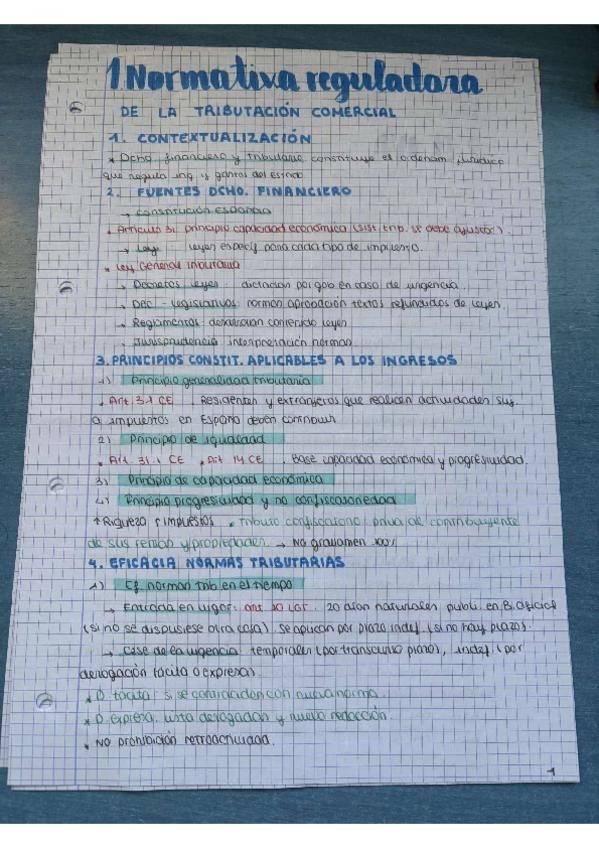 1 Normativa reguladora
DE LA TRIBUTACIÓN COMERCIAL
1. CONTEXTUALIZACIÓN
* Dcho financiero y tributario constituye el ordenam. jurídico
que regula ing. y gastos del Estado
2. FUENTES DCHO. FINANCIERO
→ Constitución española
• Artículo 31: principio capacidad económica (sist. trib. se debe ajustar).
→ Leyes: leyes específ. para cada tipo de impuesto.
• Ley General Tributaria
→ Decretos leyes: dictación por gob en caso de urgencia.
→ Dec - legislativos: normas aprobación textos refundidos de leyes.
→ Reglamentos: desarrollan contenido leyes
→ Jurisprudencia: interpretación normas
3. PRINCIPIOS CONSTIT. APLICABLES A LOS INGRESOS
1) Principio generalidad tributaria
• Art 31 CE. Residentes y extranjeros que realicen actividades suj.
a impuestos en España deben contribuir
2) Principio de igualdad
• Art. 31.1 CE • Art 14 CE. Base capacidad económica y progresividad.
3) Principio de capacidad económica
4) Principio progresividad y no confiscatoriedad
↑ Riqueza ↑ impuestos. • Tributo confiscatorio: priva de contribuyente
de sus rentas y propiedades. → No gravamen 100%
4. EFICACIA NORMAS TRIBUTARIAS
1) Ef. normas trib en el tiempo
→ Entrada en vigor: art. 10 LGT. 20 días naturales publi. en B. Oficial
(si no se dispusiese otra cosa). Se aplican por plazo indef. (si no hay plazo).
→ Cese de la vigencia: temporales (por transcurso plazo), indef. (por
derogación tácita o expresa).
* D. tácita: si se contradicen con nueva norma.
* D. expresa: lista derogados y nueva redacción.
• No prohibición retroactividad.
1